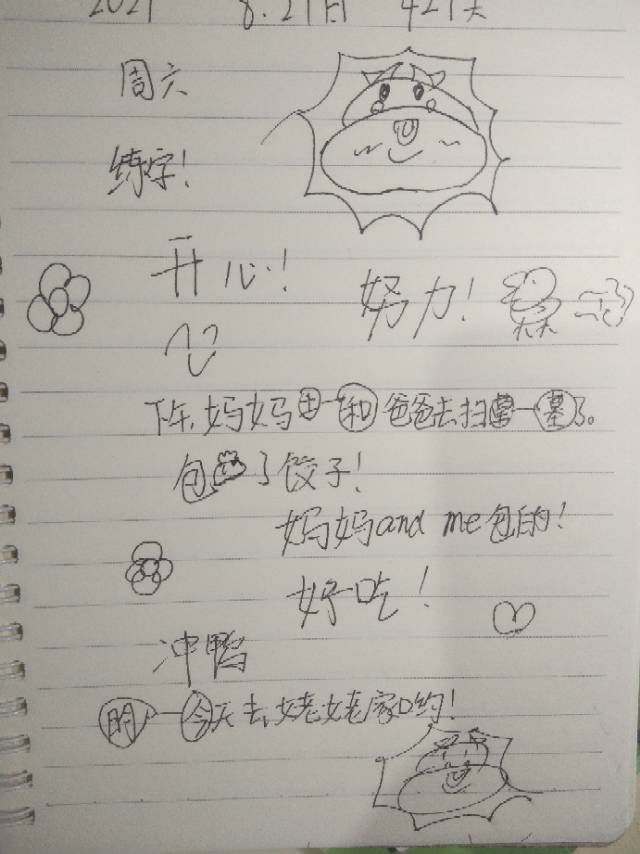 2021 8.21日 421天
周六
练字!
开心!
努力!
下午,妈妈去一和爸爸去扫墓一墓了。
包了饺子!
妈妈and me包的!
好吃!
冲鸭
明一今天去姥姥家哟!